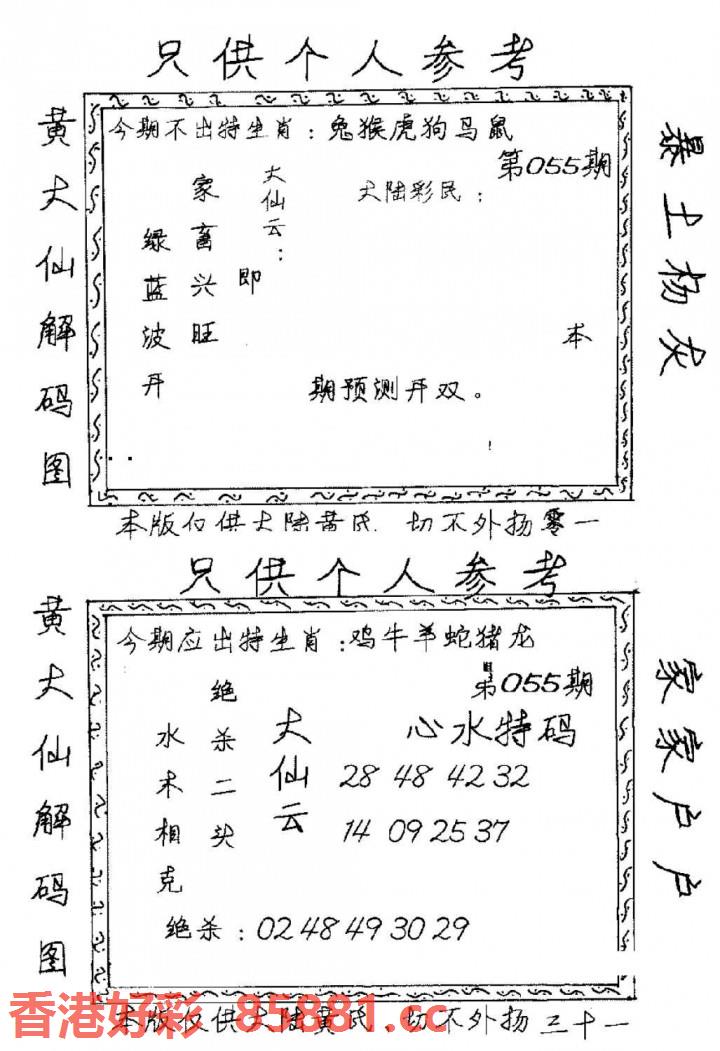 只供个人参考
黄大仙解码图
今期不出特生肖：兔猴虎狗马鼠
第055期
大陆彩民：
大仙云：
即
家畜兴旺
绿蓝波开
本
期预测开双。
暴土杨灰
本版仅供大陆黄民 切不外扬零一
只供个人参考
黄大仙解码图
今期应出特生肖：鸡牛羊蛇猪龙
第055期
心水特码
大仙云
28 48 42 32
14 09 25 37
绝杀二头
水木相克
绝杀：02 48 49 30 29
家家户户
本版仅供大陆黄民，切不外扬三十一
香港好彩 85881.cc